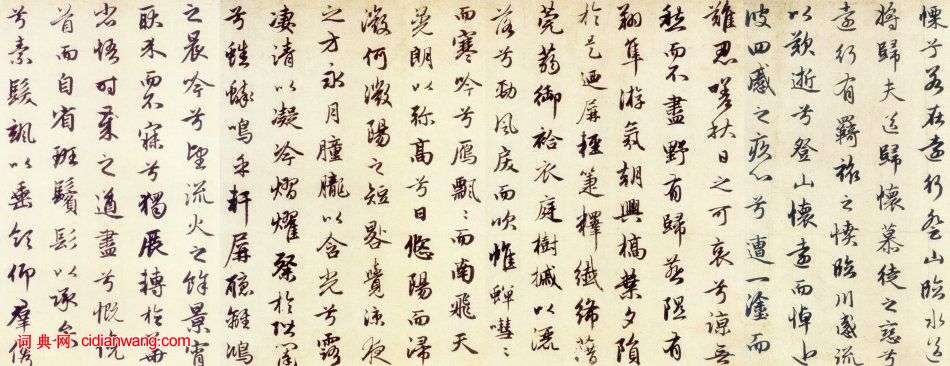 慄兮若在遠行登山臨水送
將歸夫送歸懷慕徒之戀兮
遠行有羈旅之憤臨川感流
以歎逝兮登山懷遠而悼近
彼四慼之疚心兮遭一塗而
難忍嗟秋日之可哀兮諒無
愁而不盡野有歸燕隰有
翔隼游氛朝興槁葉夕隕
於是迺屏輕箑釋纖絺藉
莞蒻御袷衣庭樹槭以灑
落兮勁風戾而吹帷蟬嘒〻
而寒吟兮雁飄〻而南飛天
晃朗以彌高兮日悠陽而浸
微何微陽之短晷覺涼夜
之方永月朣朧以含光兮露
淒清以凝冷熠燿粲於階闥
兮蟋蟀鳴乎軒屏聽離鴻
之晨吟兮望流火之餘景宵
耿介而不寐兮獨展轉於華
省悟時歲之遒盡兮慨俛
首而自省斑鬢髟以承弁
兮素髮颯以垂領仰群俊
词典网 cidianwang.com